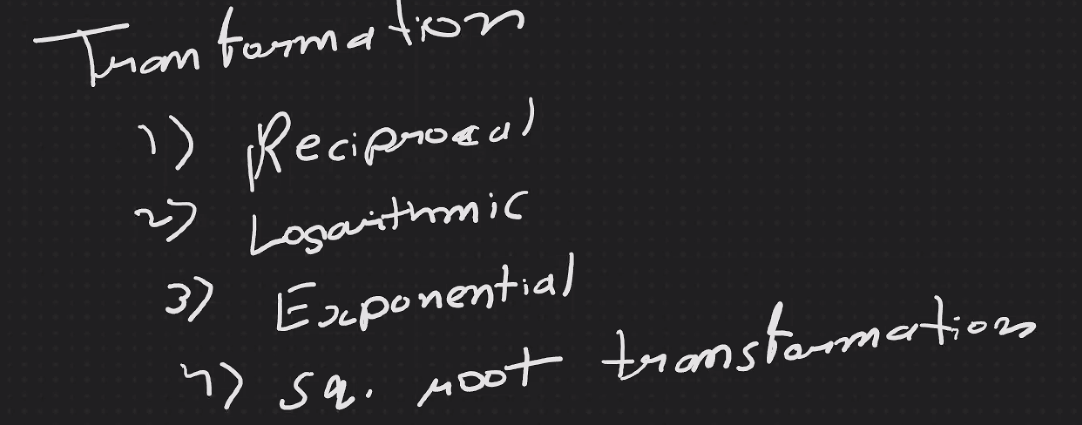 Tranformation
1) Reciprocal
2) Logarithmic
3) Exponential
4) sq. root transformation